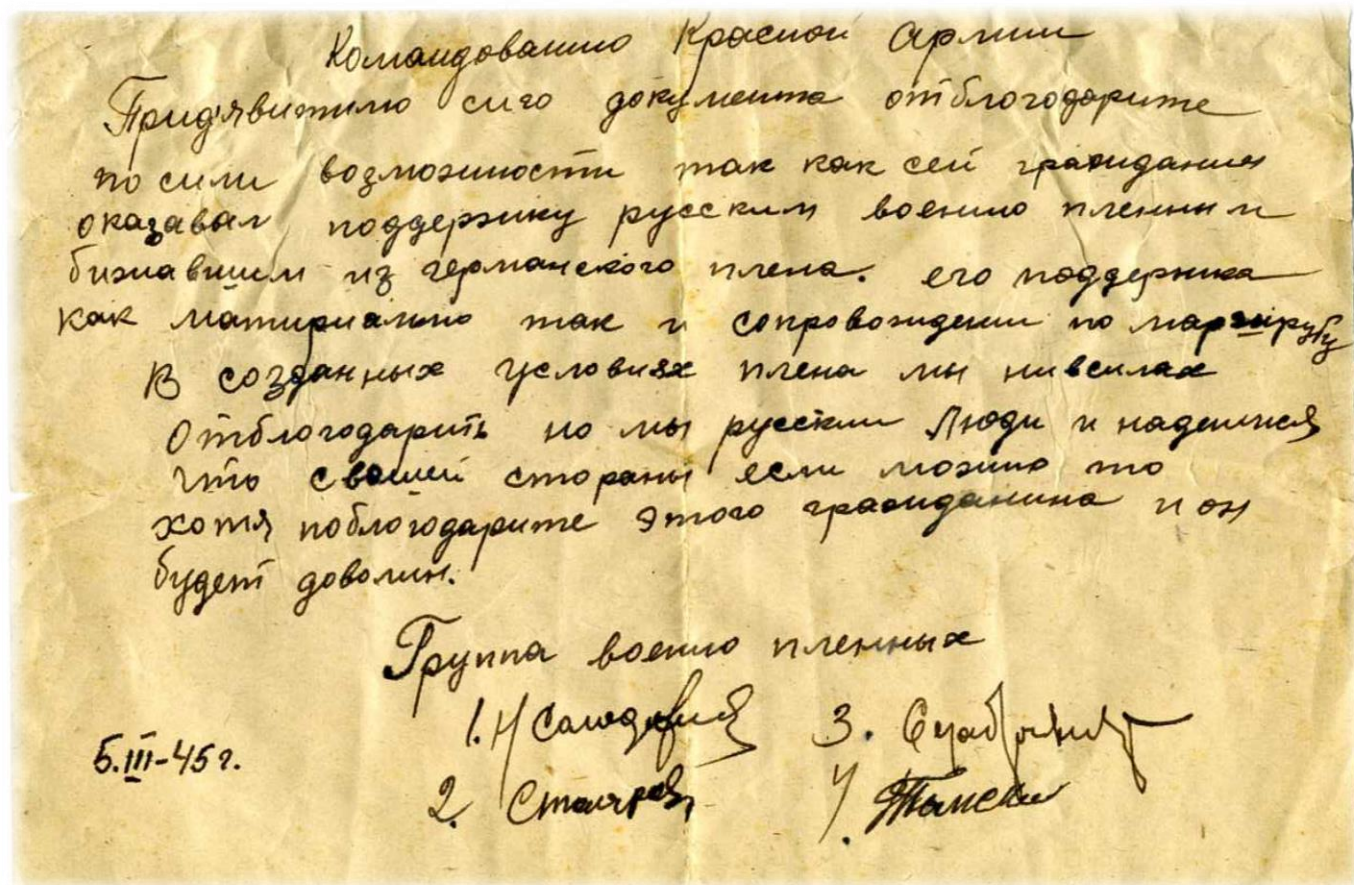 Командованию Красной Армии
Пред'явителю сего документа отблогодарите
по сили возможности так как сей гражданин
оказавал поддержку русским военно пленным
бижавшим из германского плена. его поддержка
как матириально так и сопровождении по маршруту
В созданных условиях плена мы нивсилах
Отблогодарить но мы русские Люди и надеимся
что свашей стораны если можно то
хотя поблогодарите этого гражданина и он
будет доволин.
Группа военно пленных
1. Н
3.
5.III-45 г.
2. Столяров
4.